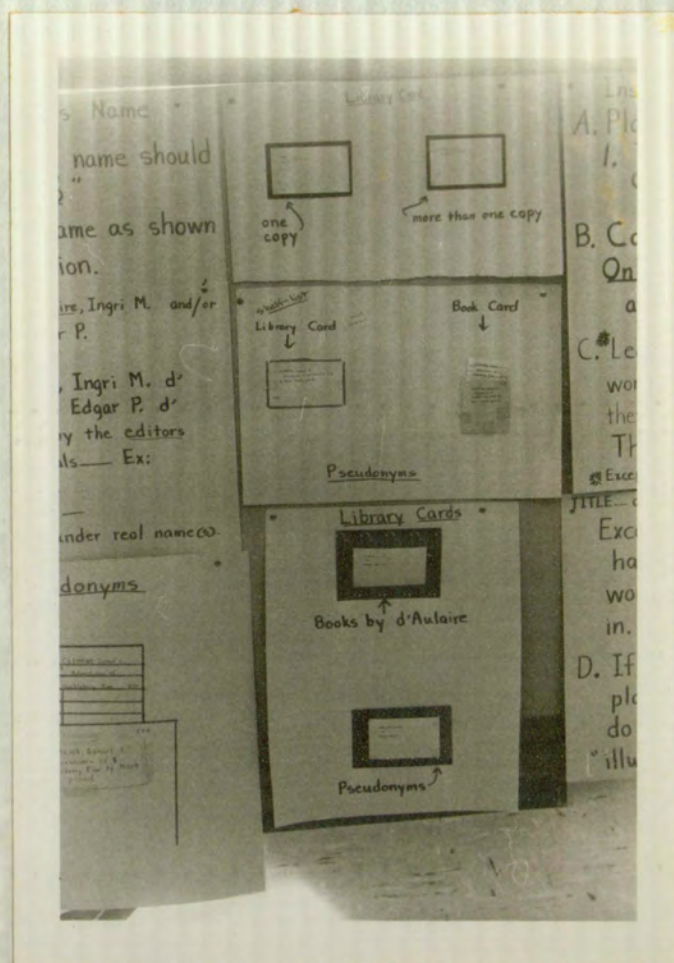 s Name
name should
ame as shown
ion.
ire, Ingri M. and/or
r P.
, Ingri M. d'
Edgar P. d'
y the editors
ls— Ex:
under real name(s).
donyms
Library Card
one
copy
more than one copy
shelf-list
Library Card
Book Card
Pseudonyms
Library Cards
Books by d'Aulaire
Pseudonyms
Ins
A. Pla
1.
B. Ca
On
a
C. Le
wor
the
Th
Exce
TITLE—
Exc
ha
wo
in.
D. If
pla
do
"illu